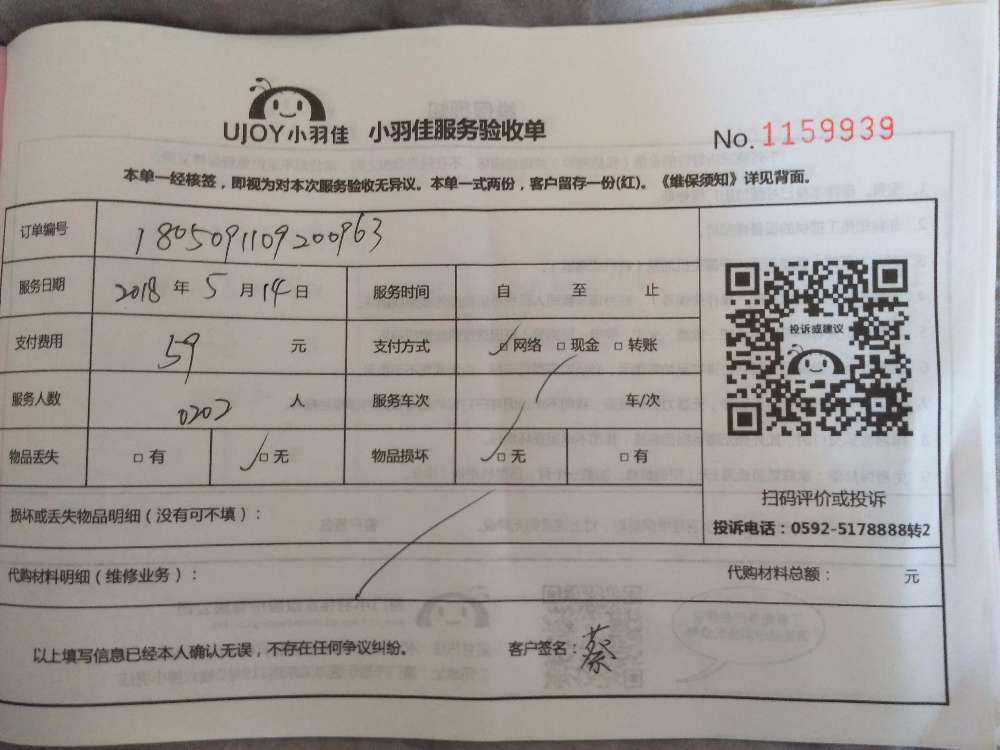 UJOY小羽佳 小羽佳服务验收单 No. 1159939
本单一经核签，即视为对本次服务验收无异议。本单一式两份，客户留存一份(红)。《维保须知》详见背面。
订单编号 180509110920 0963
服务日期 2018 年 5 月 14 日 服务时间 自 至 止
支付费用 59 元 支付方式 □网络 □现金 □转账
服务人数 0202 人 服务车次 车/次
物品丢失 □ 有 □ 无 物品损坏 □ 无 □ 有
投诉或建议
扫码评价或投诉
损坏或丢失物品明细（没有可不填）：
投诉电话：0592-5178888转2
代购材料明细（维修业务）： 代购材料总额： 元
以上填写信息已经本人确认无误，不存在任何争议纠纷。 客户签名：蔡